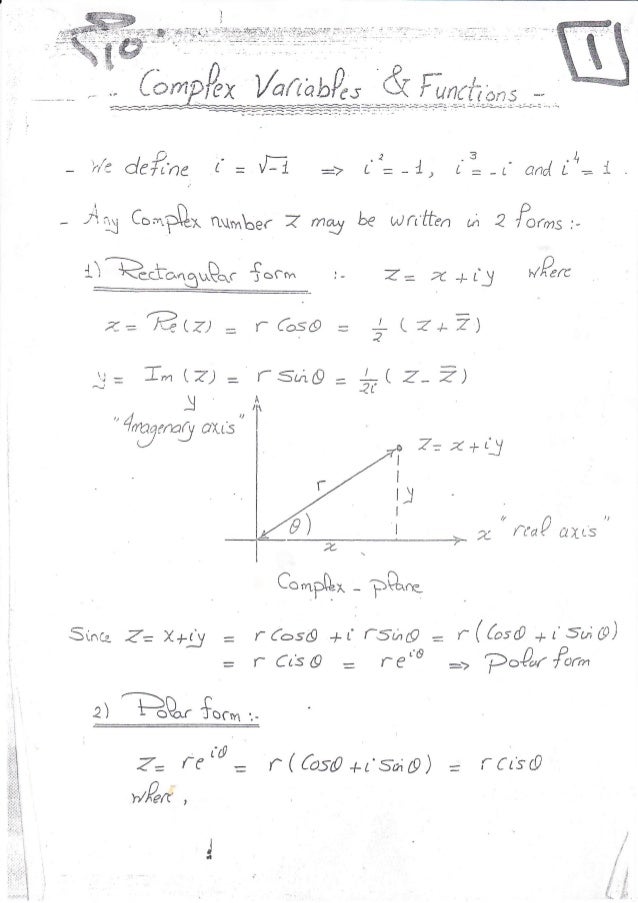 10
1
Complex Variables & Functions
- We define i = √-1 => i² = -1, i³ = -i and i⁴ = 1.
- Any Complex number Z may be written in 2 forms :-
1) Rectangular form :- Z = x + iy where
x = Re(Z) = r Cosθ = 1/2 (Z + Z̅)
y = Im (Z) = r Sinθ = 1/2i (Z - Z̅)
y
"Imagenary axis"
Z = x + iy
r
y
θ
x
x "real axis"
Complex - plane
Since Z = X+iy = r Cosθ + i r Sinθ = r (Cosθ + i Sinθ)
= r Cis θ = re^iθ => Polar form
2) Polar form :-
Z = re^iθ = r (Cosθ + i Sinθ) = r Cisθ
where,